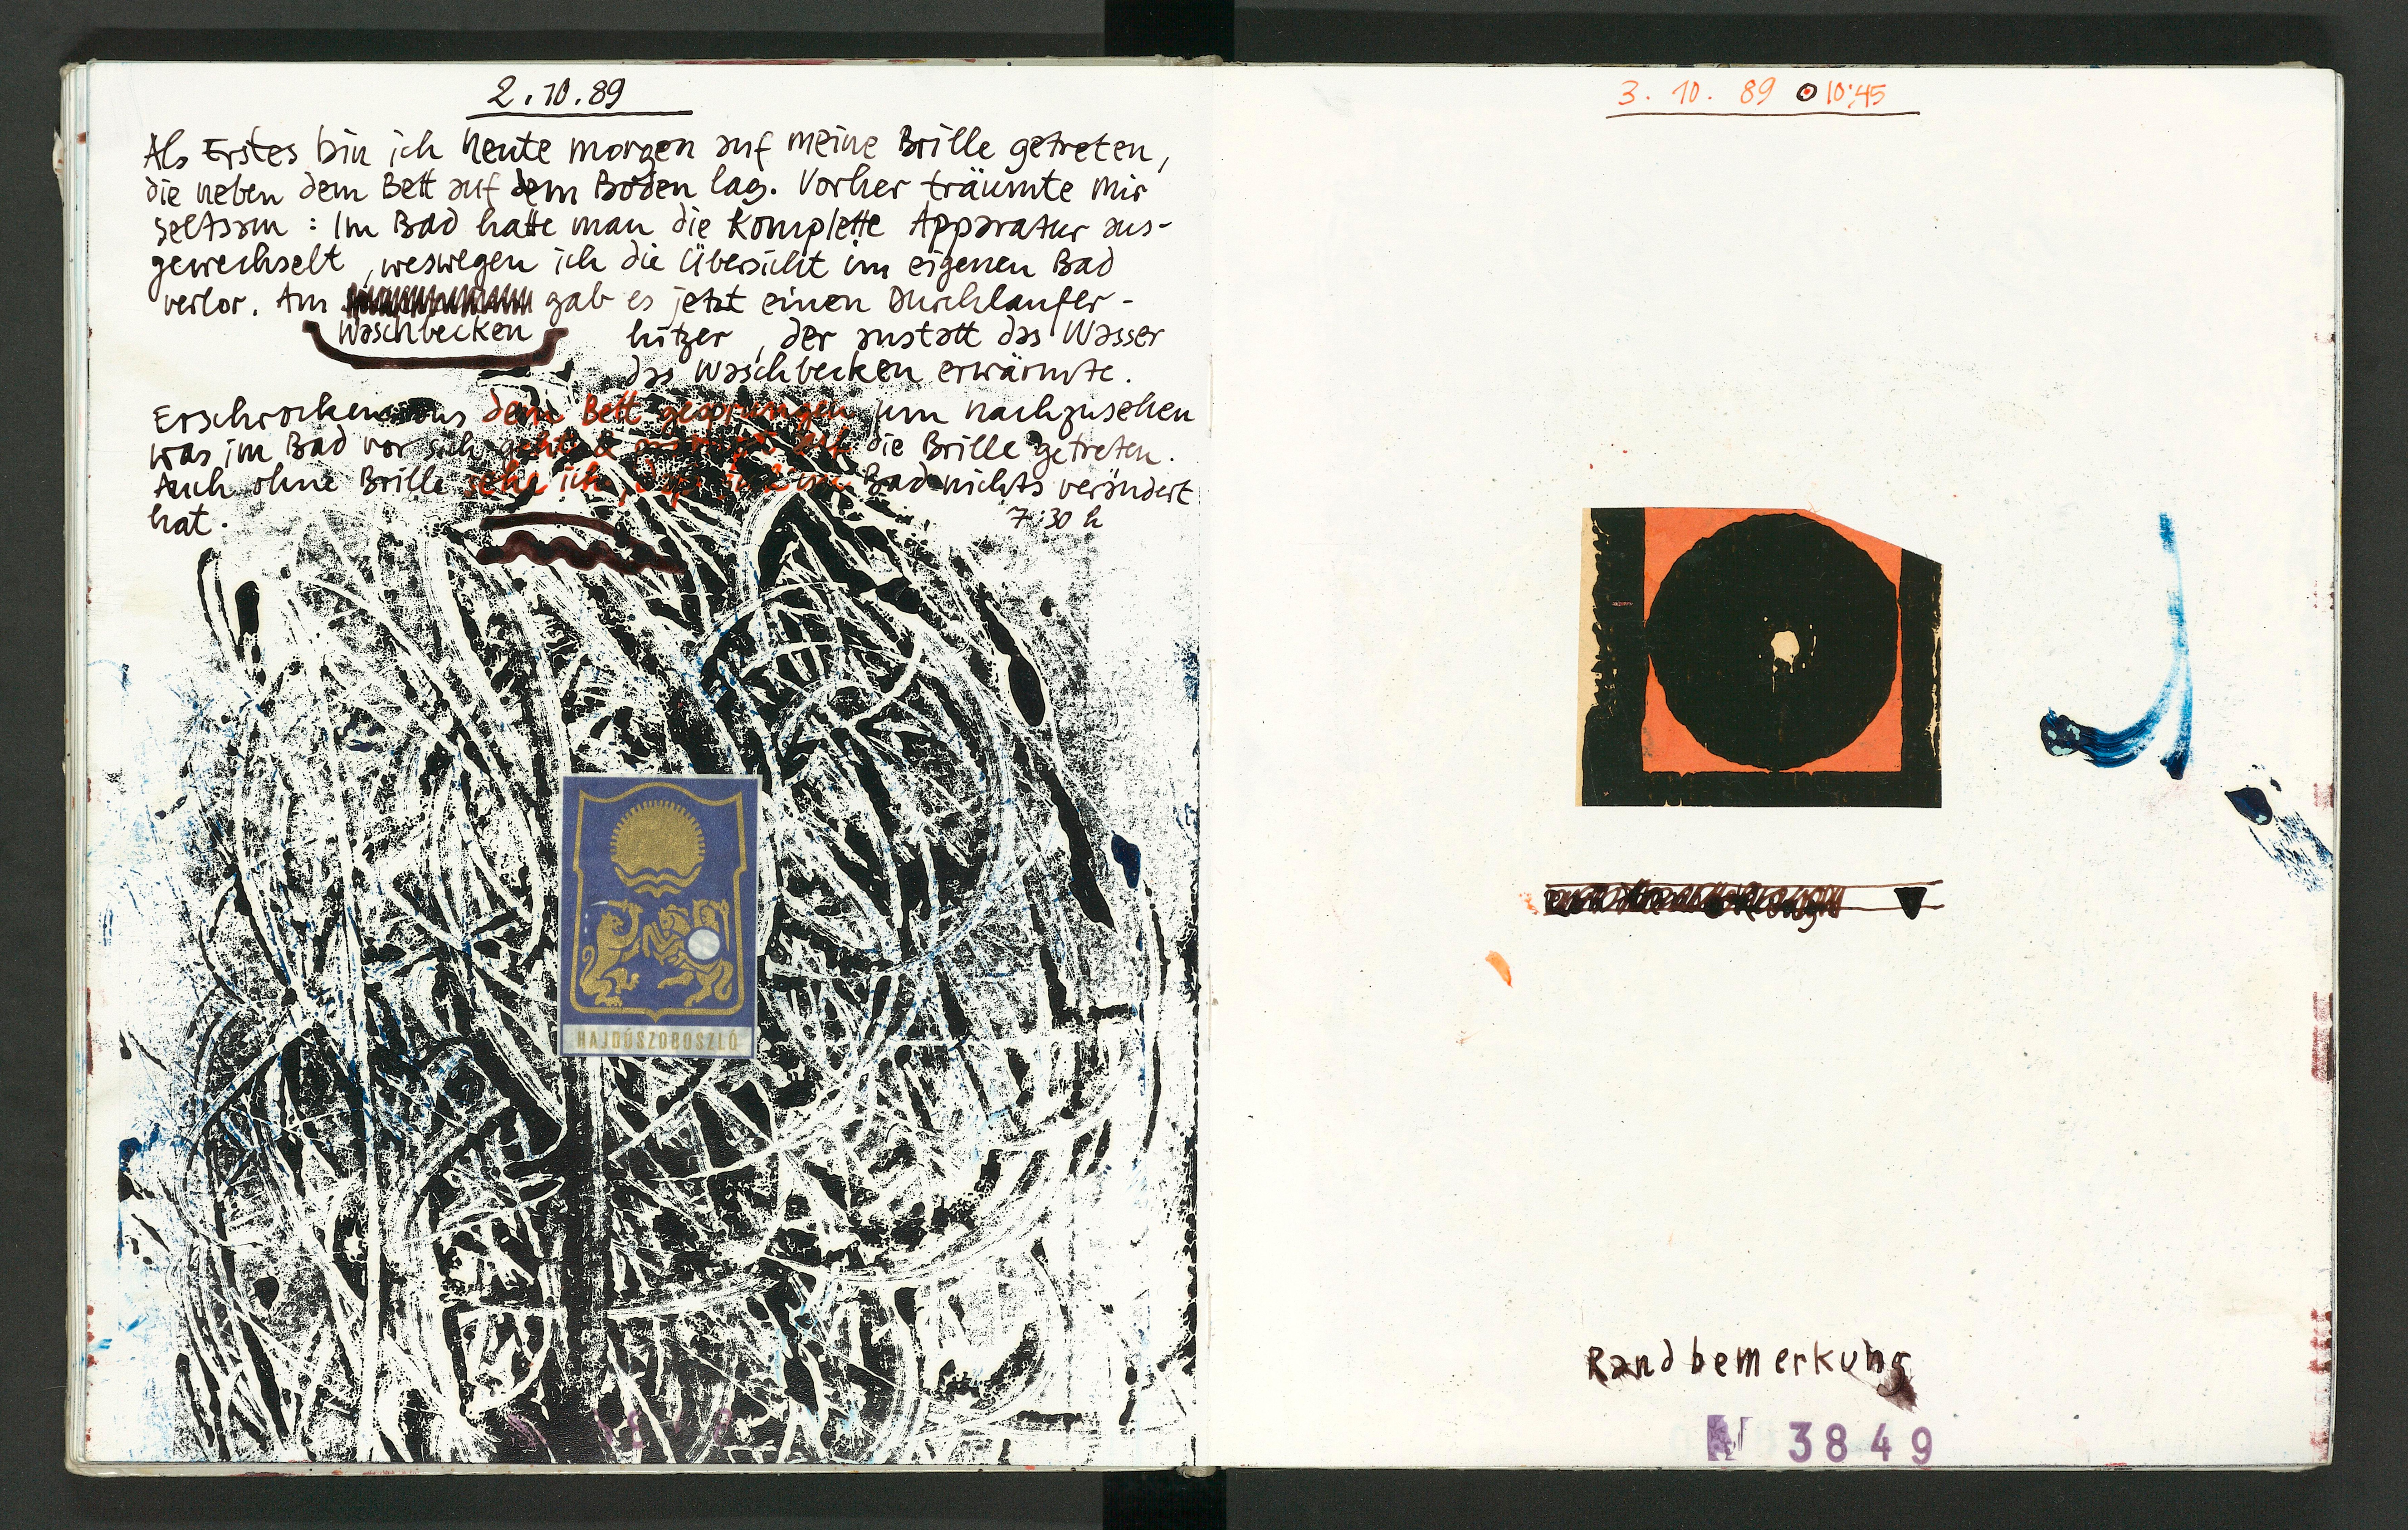 2.10.89
Als Erstes bin ich heute morgen auf meine Brille getreten,
die neben dem Bett auf dem Boden lag. Vorher träumte mir
seltsam : Im Bad hatte man die Komplette Apparatur aus-
gewechselt, weswegen ich die Übersicht im eigenen Bad
verlor. Am gab es jetzt einen Durchlaufer-
Waschbecken hitzer, der anstatt das Wasser
das Waschbecken erwärmte.
Erschrocken aus dem Bett gesprungen um nachzusehen
was im Bad vor sich geht & die Brille getreten.
Auch ohne Brille sehe ich, Bad nichts verändert
hat. 7:30 h
HAJDÚSZOBOSZLÓ
3. 10. 89 10:45
Randbemerkung
N 3849